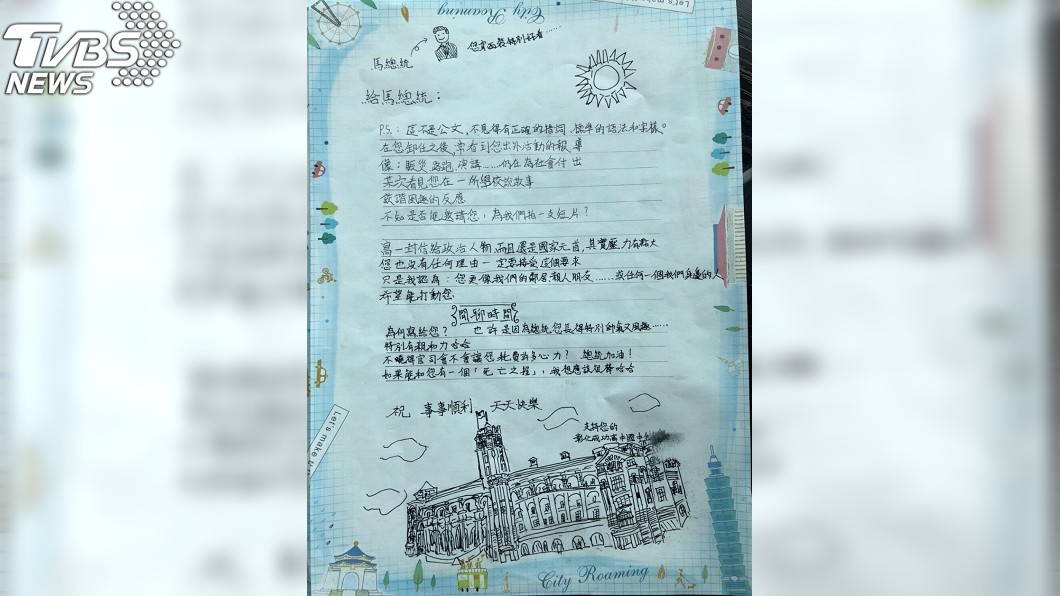 TVBS
NEWS
City Roaming
Let's make
您穿西裝特別好看……
馬總統
給馬總統：
P.S.：這不是公文，不見得有正確的措詞、標準的語法和字樣。
在您卸任之後，常看到您出外活動的報導
像：賑災、路跑、演講……仍在為社會付出
某次看見您在一所學校說故事
詼諧風趣的反應
不知是否能邀請您，為我們拍一支短片？
寫一封信給政治人物，而且還是國家元首，其實壓力有點大
您也沒有任何理由一定要接受這個要求
只是我認為：您更像我們的鄰居、親人、朋友……或任何一個我們身邊的人
希望能打動您
閒聊時間
為何寫給您？ 也許是因為總統您長得特別帥氣又風趣……
特別有親和力哈哈
不曉得官司會不會讓您耗費許多心力？ 總統加油！
如果能和您有一個「死亡之握」，我想應該很棒哈哈
祝 事事順利 天天快樂
支持您的
彰化成功高中國中
Let's make
City Roaming